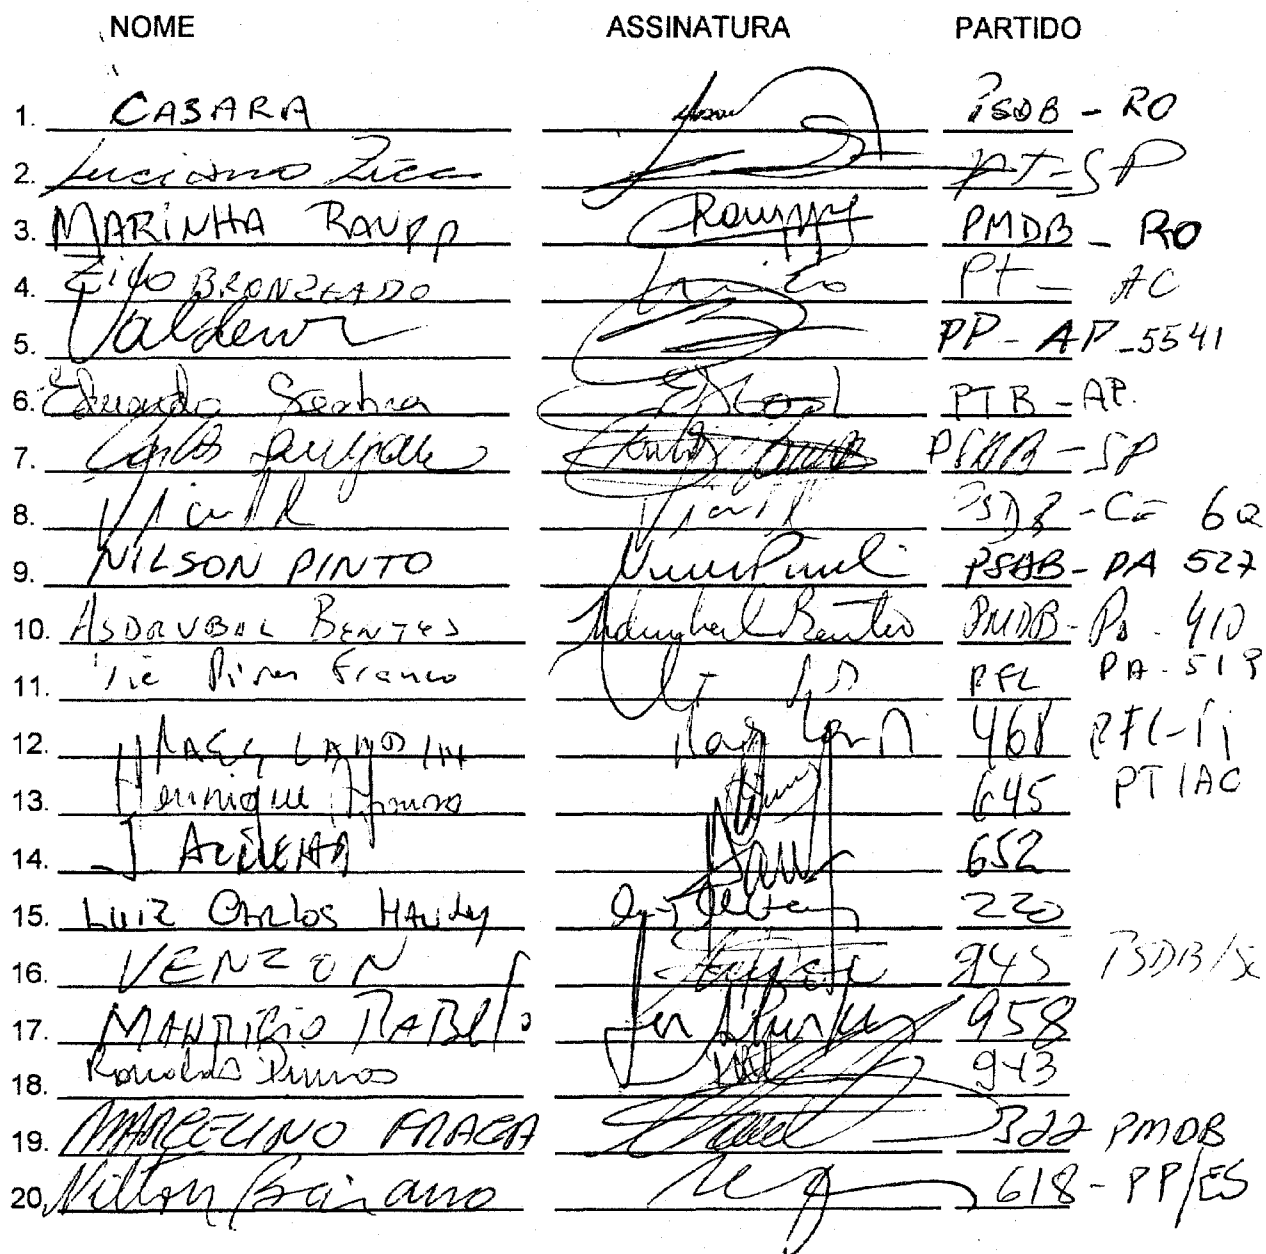 NOME ASSINATURA PARTIDO
1. CASARA PSDB - RO
2. Luciano Zica PT-SP
3. MARINHA RAUPP Raupp PMDB - RO
4. Zico BRONZEADO PT - AC
5. Valdenir PP - AP - 5541
6. Eduardo Seabra PTB - AP.
7. Carlos PSDB - SP
8. PSDB - CE
9. NILSON PINTO PSDB - PA 527
10. ASDRUBAL BENTES Asdrubal Bentes PMDB - PA - 410
11. Vic Pires Franco PFL PA - 519
12. 468 PFL-PI
13. Henrique Afonso 645 PT/AC
14. 652
15. LUIZ CARLOS HAULY 220
16. VENZON 945 PSDB/SC
17. MAURICIO RABELO 958
18. Ronaldo Dimas 943
19. MARCELINO FRAGA 322 PMDB
20. Nilton Baiano 618 - PP/ES